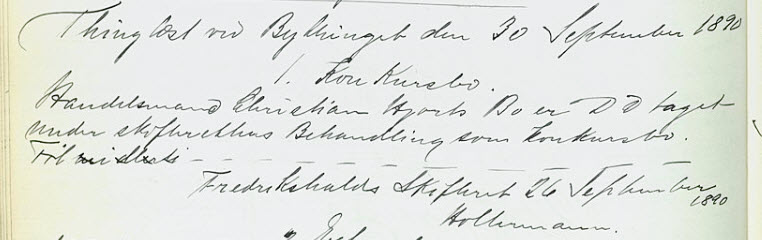 Thinglæst ved Bythinget den 30 September 1890
1. Konkursbo.
Handelsmand Christian Hjorts Bo er D D taget
under skifterettens Behandling som konkursbo.
Fredrikshalds Skifteret 26 September
1890
Hollermann.